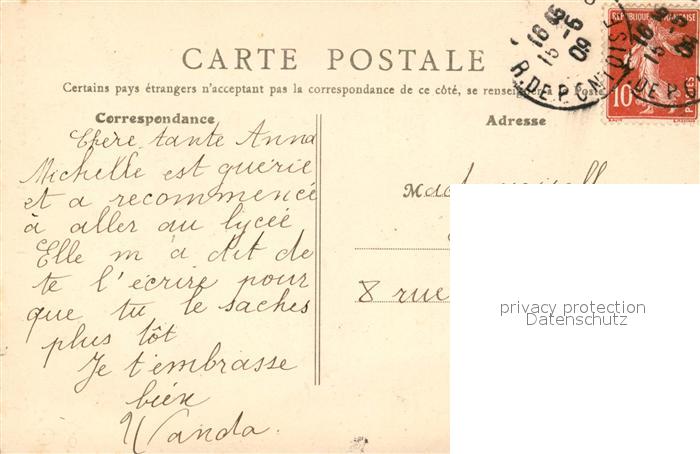 CARTE POSTALE
Certains pays étrangers n'acceptant pas la correspondance de ce côté, se renseigner à la Poste
Correspondance
Chère tante Anna
Michelle est guérie
et a recommencé
à aller au lycée
Elle m'a dit de
te l'écrire pour
que tu le saches
plus tôt
Je t'embrasse
bien
Wanda.
Adresse
8 rue
privacy protection
Datenschutz
REPUBLIQUE FRANÇAISE
10
POSTES
R. DE PONTOISE